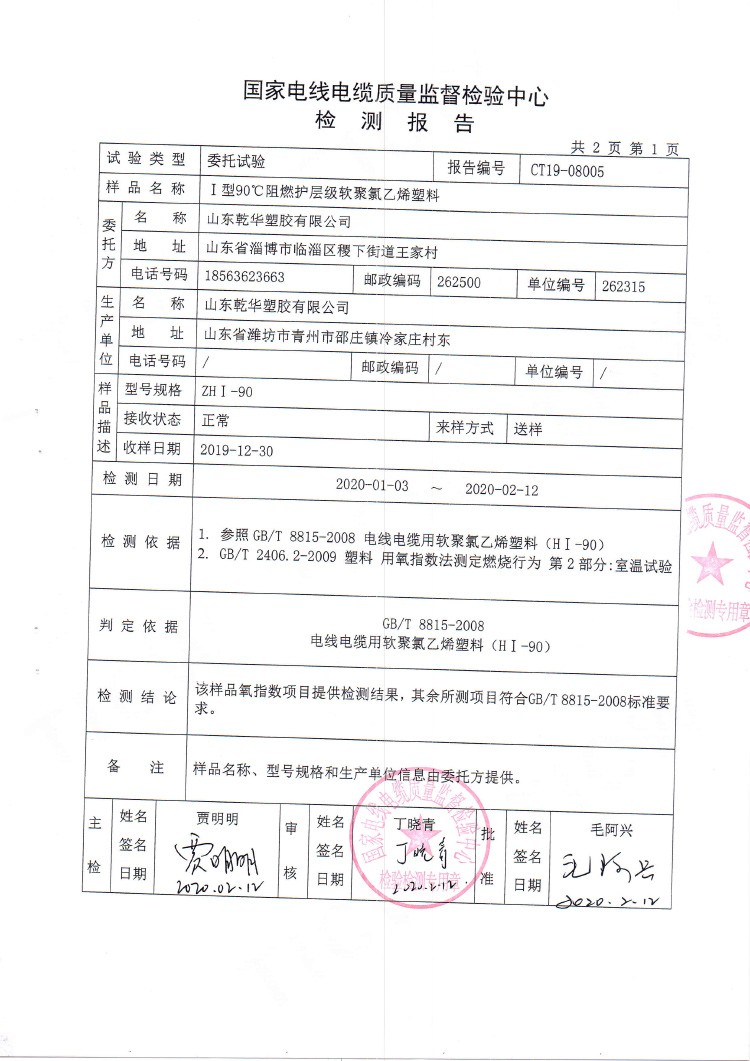 国家电线电缆质量监督检验中心
检 测 报 告
共 2 页 第 1 页
试 验 类 型 委托试验 报告编号 CT19-08005
样 品 名 称 Ⅰ型90℃阻燃护层级软聚氯乙烯塑料
委托方 名 称 山东乾华塑胶有限公司
地 址 山东省淄博市临淄区稷下街道王家村
电话号码 18563623663 邮政编码 262500 单位编号 262315
生产单位 名 称 山东乾华塑胶有限公司
地 址 山东省潍坊市青州市邵庄镇冷家庄村东
电话号码 / 邮政编码 / 单位编号 /
样品描述 型号规格 ZHⅠ-90
接收状态 正常 来样方式 送样
收样日期 2019-12-30
检 测 日 期 2020-01-03 ～ 2020-02-12
检 测 依 据 1. 参照 GB/T 8815-2008 电线电缆用软聚氯乙烯塑料（HⅠ-90）
2. GB/T 2406.2-2009 塑料 用氧指数法测定燃烧行为 第2部分:室温试验
判 定 依 据 GB/T 8815-2008
电线电缆用软聚氯乙烯塑料（HⅠ-90）
检 测 结 论 该样品氧指数项目提供检测结果，其余所测项目符合GB/T 8815-2008标准要
求。
备 注 样品名称、型号规格和生产单位信息由委托方提供。
主检 姓名 贾明明 审核 姓名 丁晓青 批准 姓名 毛阿兴
签名 贾明明 签名 丁晓青 签名 毛阿兴
日期 2020.02.12 日期 2020.2.12. 日期 2020.2.12
国家电线电缆质量监督检验中心
检验检测专用章
缆质量监督
检测专用章